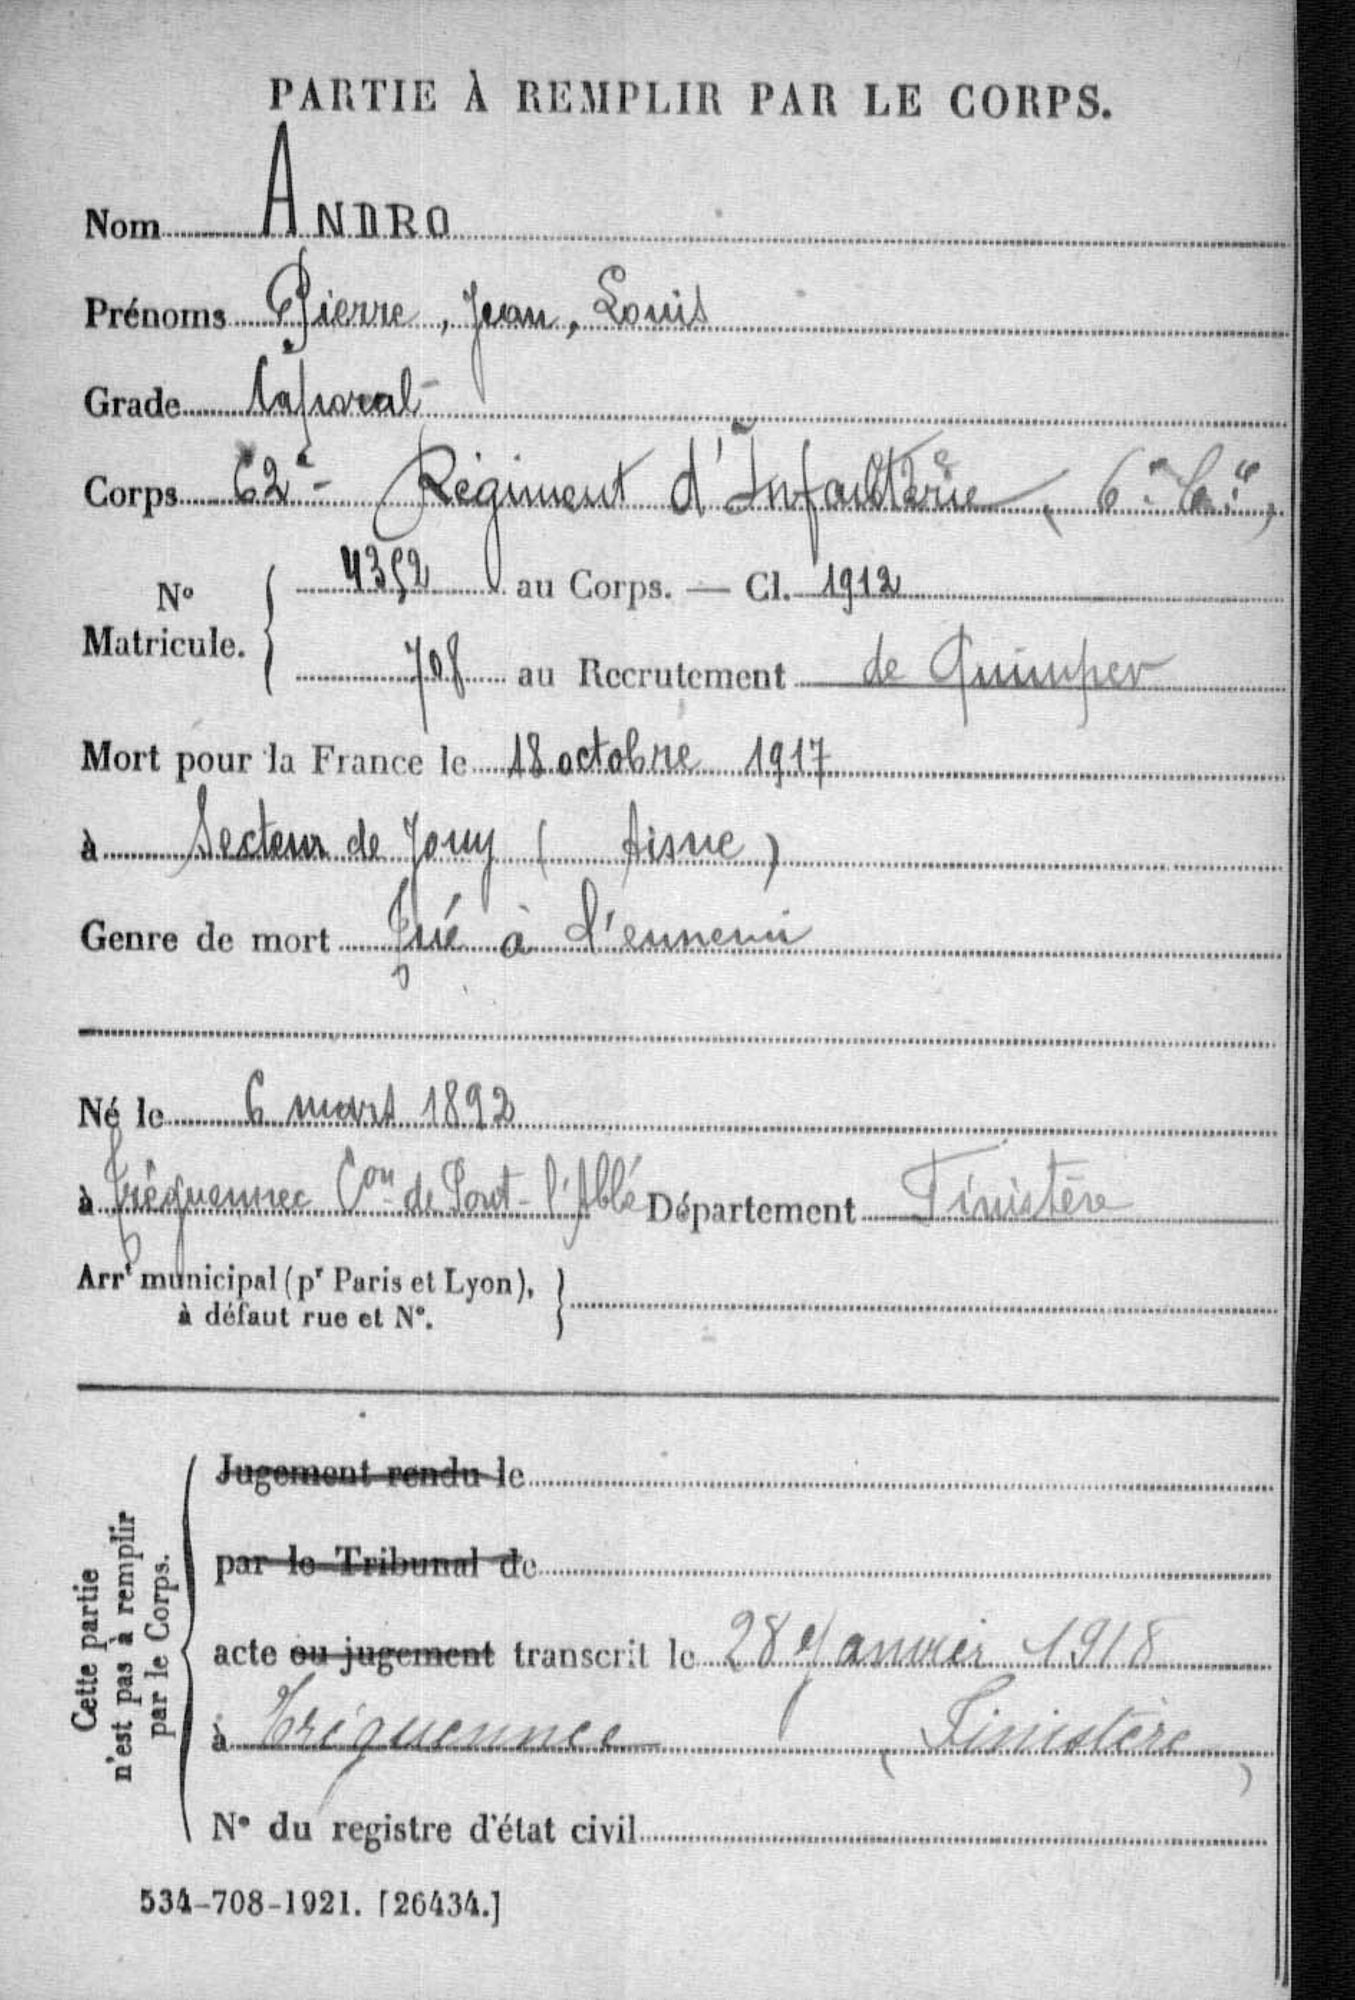 PARTIE À REMPLIR PAR LE CORPS.
Nom ANDRO
Prénoms Pierre, Jean, Louis
Grade Caporal
Corps 62e Régiment d'Infanterie (6e Cie)
No Matricule. { 4352 au Corps. — Cl. 1912
708 au Recrutement de Quimper
Mort pour la France le 18 octobre 1917
à Secteur de Jouy (Aisne)
Genre de mort Tué à l'ennemi
Né le 6 mars 1892
à Tréguennec Con de Pont-l'Abbé Département Finistère
Arrt municipal (pr Paris et Lyon), }
à défaut rue et No.
Cette partie
n'est pas à remplir
par le Corps.
Jugement rendu le
par le Tribunal de
acte ou jugement transcrit le 28 Janvier 1918
à Tréguennec (Finistère)
No du registre d'état civil
534-708-1921. [26434.]